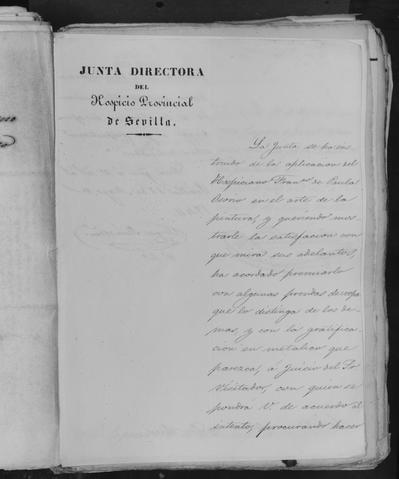 JUNTA DIRECTORA
DEL
Hospicio Provincial
de Sevilla.
La Junta se ha en
terado de la aplicacion del
Hospiciano Fran.co de Paula
Osorio en el arte de la
pintura, y queriendo mos
trarle la satisfaccion con
que mira sus adelantos,
ha acordado premiarle
con algunas prendas de ropa
que lo distinga de los de
mas, y con la gratifica
cion en metalico que
parezca, á juicio del Sr
Visitador, con quien se
pondrá V. de acuerdo al
intento, procurando hacer